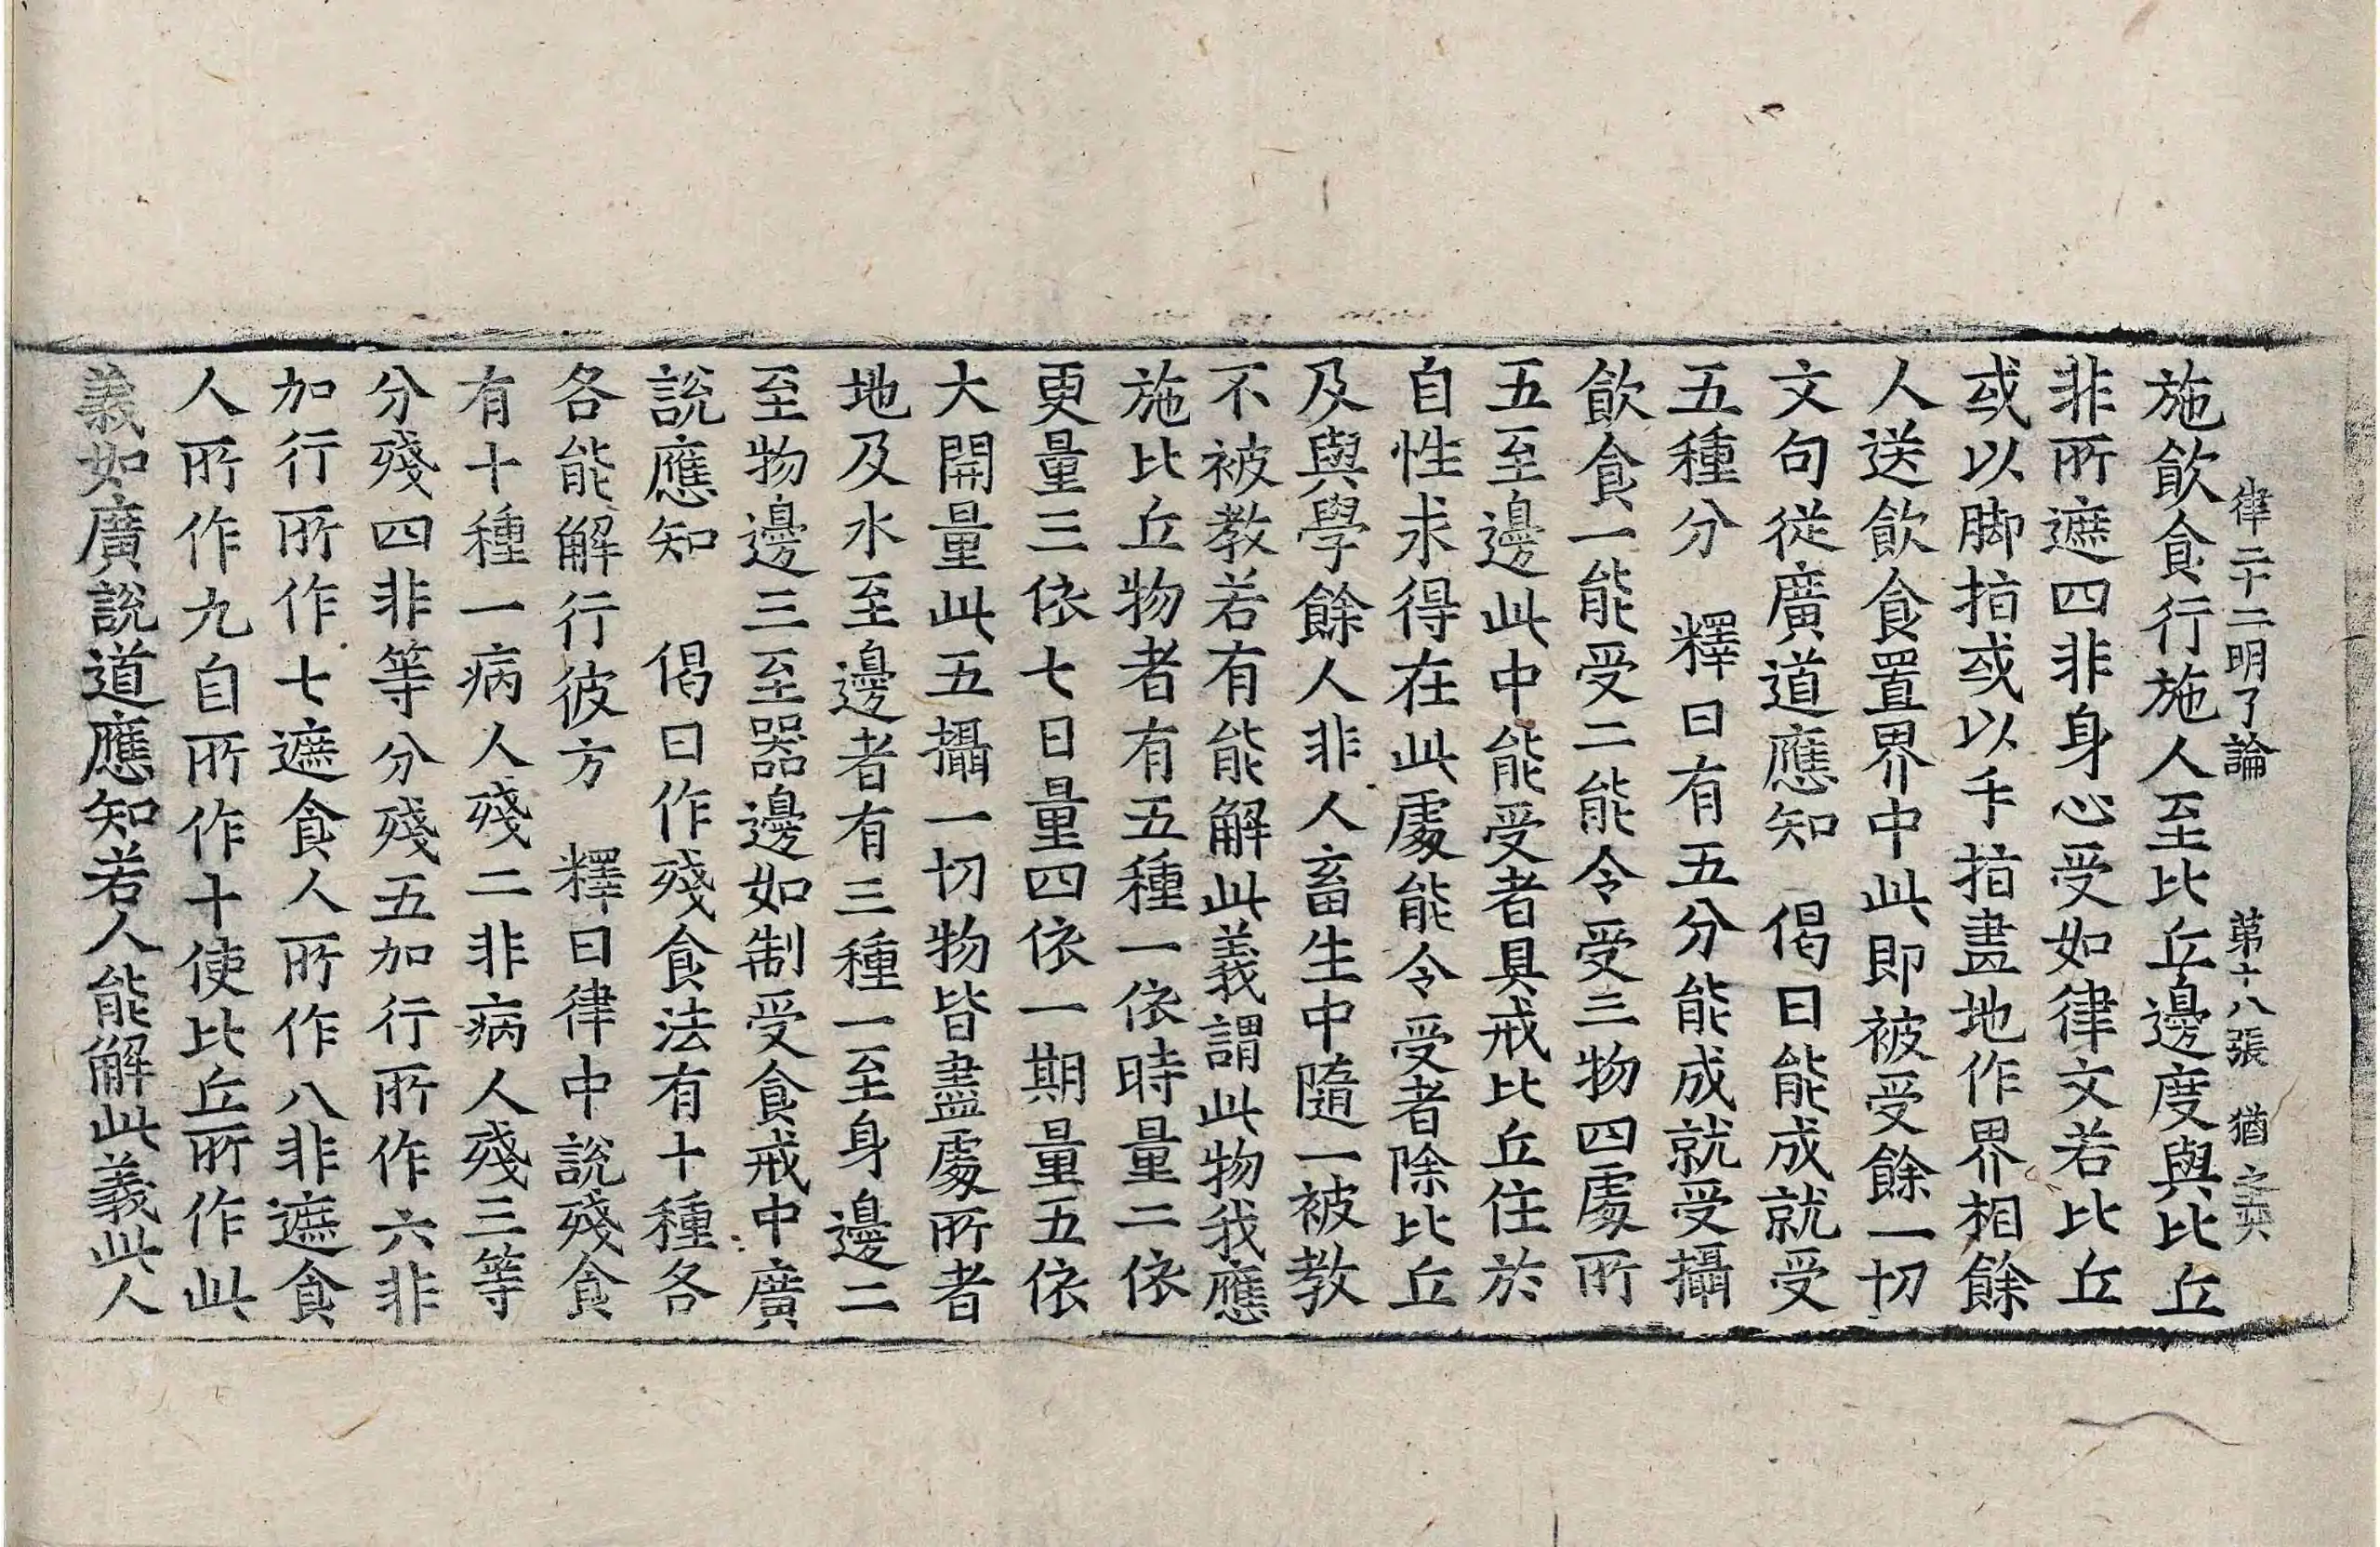 律二十二明了論　第十八張　猶
施飮食行施人至比丘邊度與比丘
非所遮四非身心受如律文若比丘
或以脚指或以手指畫地作界相餘
人送飮食置界中此即被受餘一切
文句從廣道應知　偈曰能成就受
五種分　釋曰有五分能成就受攝
飮食一能受二能令受三物四處所
五至邊此中能受者具戒比丘住於
自性求得在此處能令受者除比丘
及與學餘人非人畜生中隨一被教
不被教若有能解此義謂此物我應
施比丘物者有五種一依時量二依
更量三依七日量四依一期量五依
大開量此五攝一切物皆盡處所者
地及水至邊者有三種一至身邊二
至物邊三至器邊如制受食戒中廣
說應知　偈曰作殘食法有十種各
各能解行彼方　釋曰律中說殘食
有十種一病人殘二非病人殘三等
分殘四非等分殘五加行所作六非
加行所作七遮食人所作八非遮食
人所作九自所作十使比丘所作此
義如廣說道應知若人能解此義此人